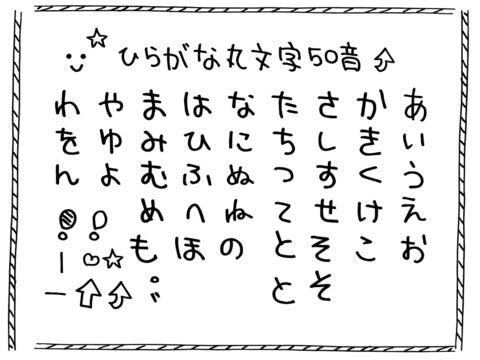 ☆ひらがな丸文字50音⇧
あいうえお
かきくけこ
さしすせそそ
たちつてとと
なにぬねの
はひふへほ
まみむめも゜゛
やゆよ!♡☆⇧⇧
わをん!|ー